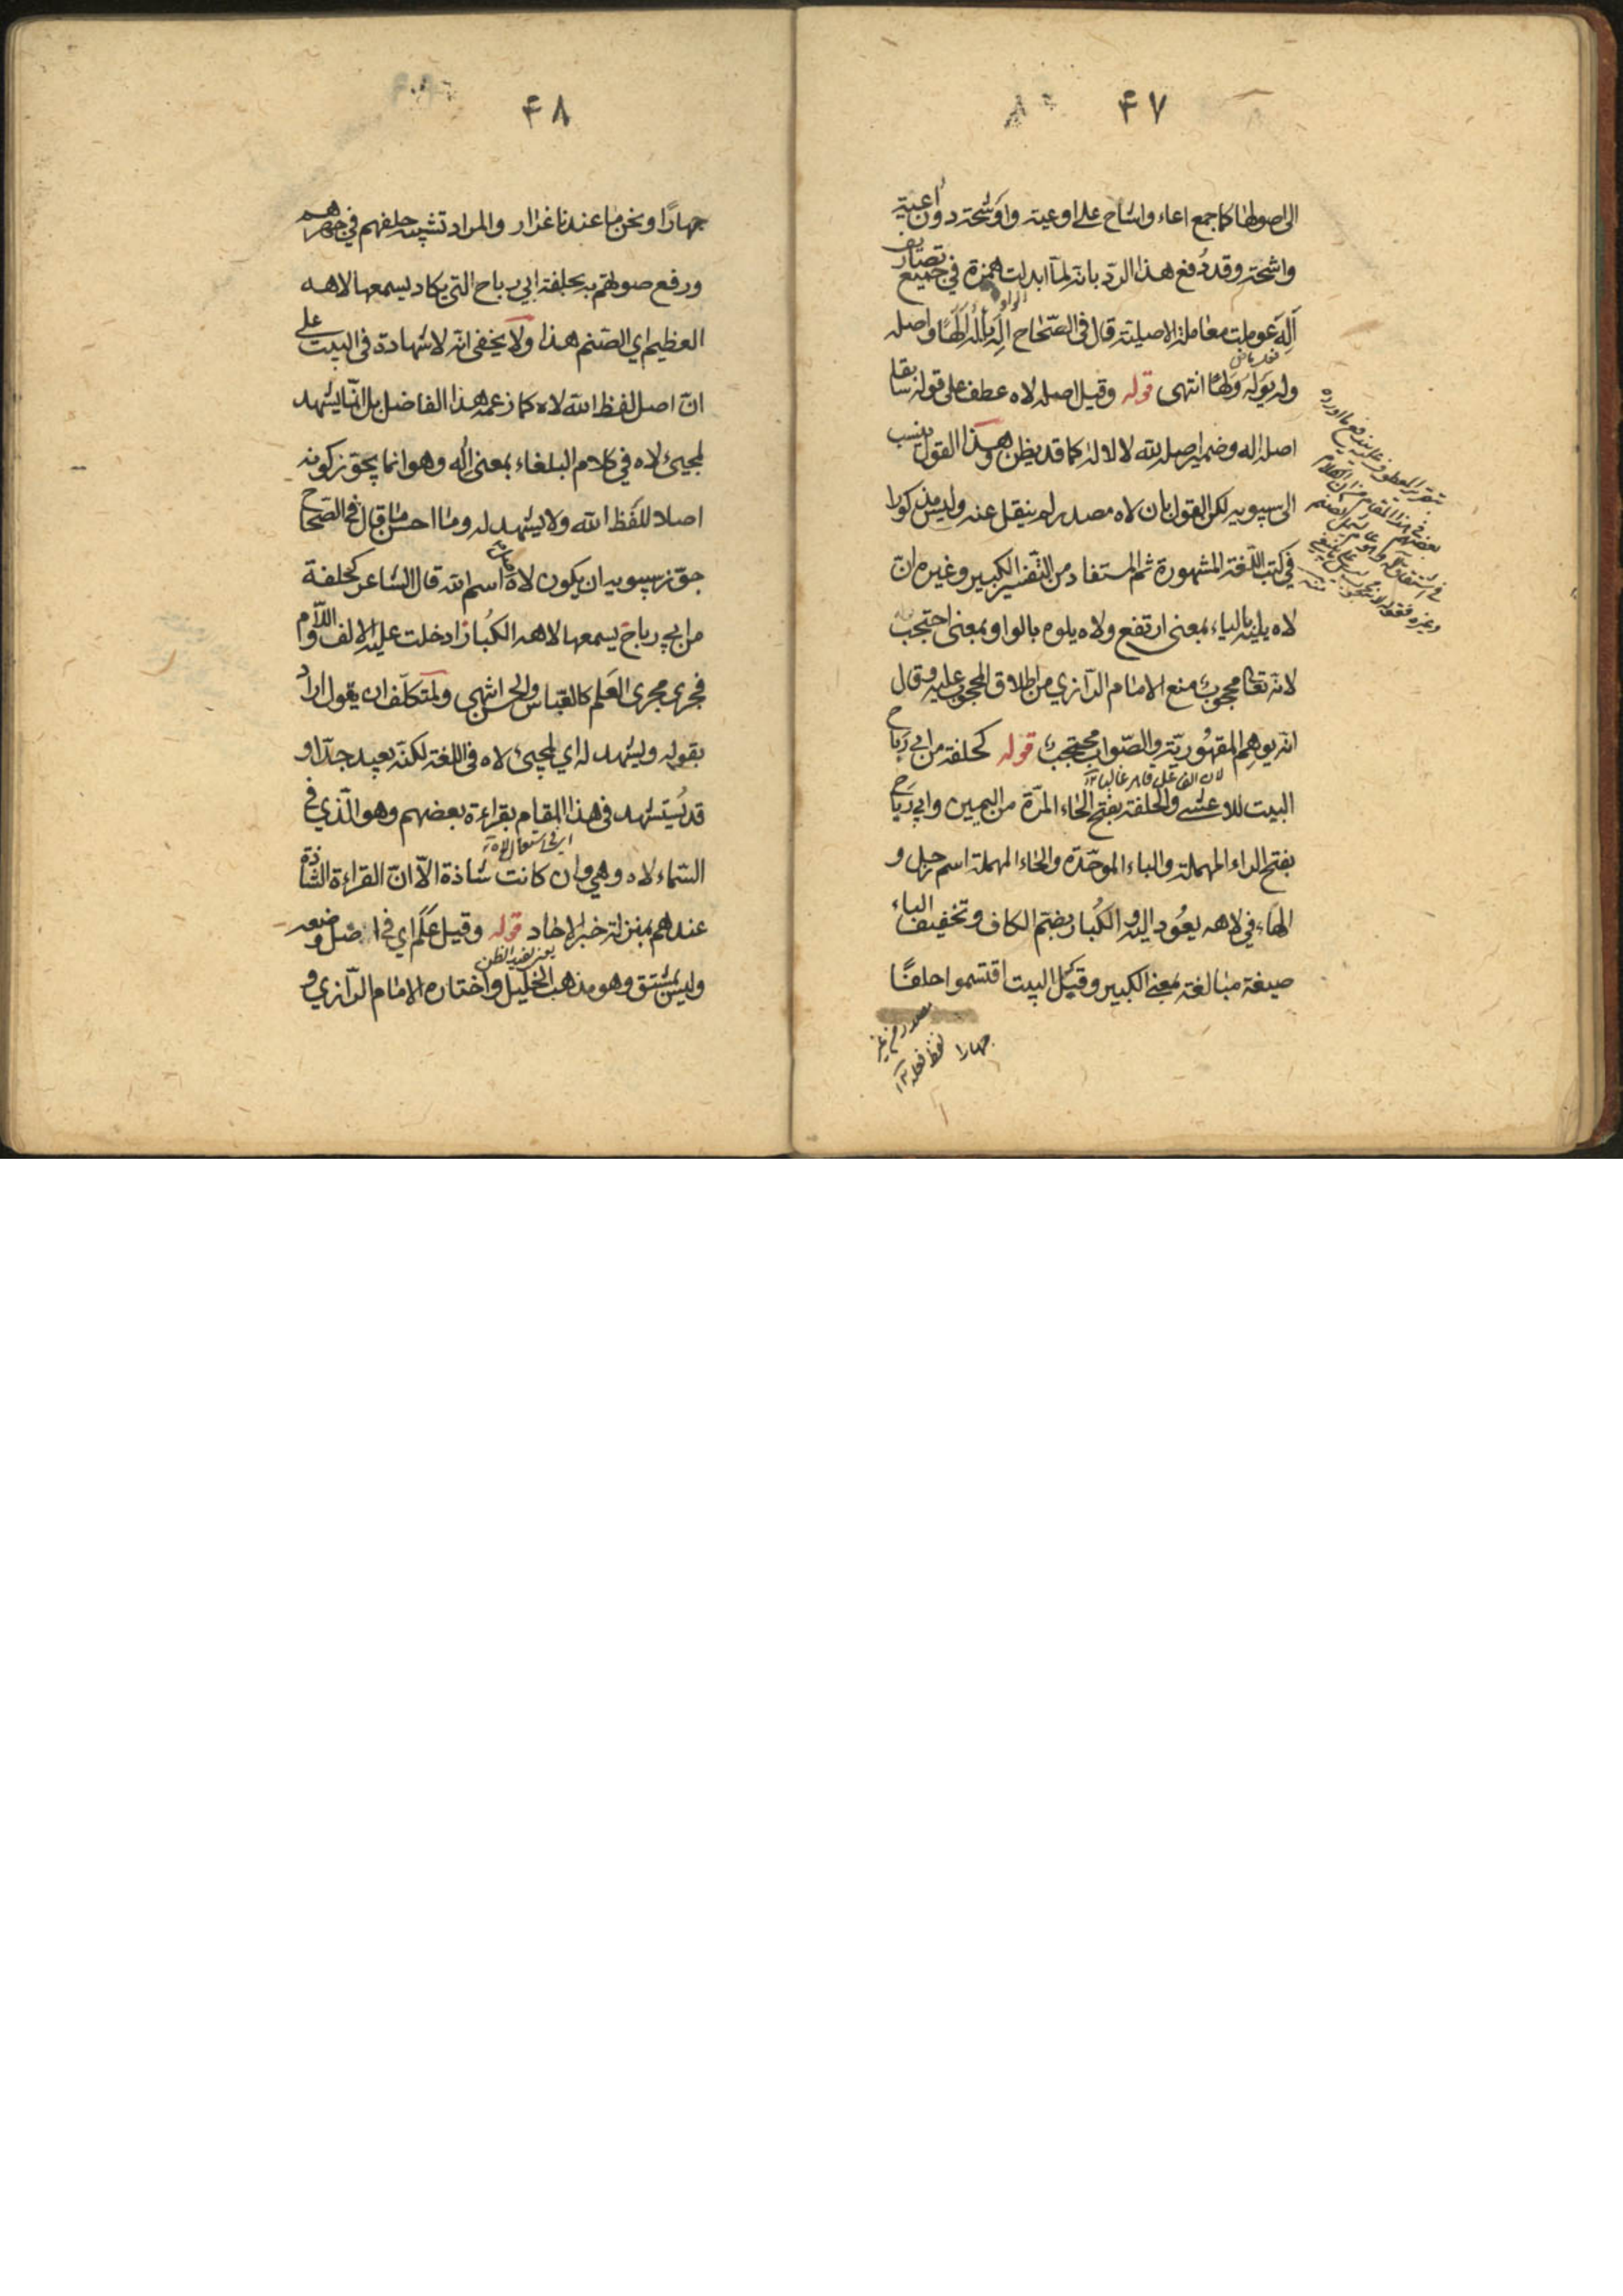 ۴۷
الى اصولها كما جمع اعاء واشاح على اوعية واوشحة دون اعية
واشحة وقد دُفع هذا الردّ بانه لما ابدلت الواو همزة في جميع تصاريف
اَلِهَ عوملت معاملة الاصلية قال في الصّحاح اَلِهَ يألَهُ اَلَهًا واصله
وله يَوْلَهُ وَلَهًا انتهى قوله وقيل اصله لاه عطف على قوله سابقا
اصله اله وضمير اصله لله لا لاله كما قد يظن وهذا القول ينسب
الى سيبويه لكن القول بان لاه مصدر لم ينقل عنه وليس مذكورا
في كتب اللّغة المشهورة ثم المستفاد من التّفسير الكبير وغيره انّ
لاه يليه بالياء بمعنى ارتفع ولاه يلوه بالواو بمعنى احتجب
لانه تعالى محجوب منع الامام الرّازي من اطلاق المحجوب عليه وقال
انه يوهم المقهوريّة والصّواب محتجب قوله كحلفة من ابي رَباح
لان الفاعل قاهر غالبا ١٢
البيت للاعشى والحلفة بفتح الحاء المرّة من اليمين وابي رَباح
بفتح الراء المهملة والباء الموحّدة والحاء المهملة اسم رجل و
الهاء في لاهه يعُود اليه والكُبار بضم الكاف وتخفيف الباء
صيغة مبالغة بمعنى الكبير وقبل البيت اقتسموا حلفًا
جهارا
مصدر من غير
لفظ فعله ١٢
۴۸
جهارًا ونحن ما عندنا غرار والمراد تشبيه حلفهم في جهرهم
ورفع صوتهم به بحلفة ابي رباح التي يكاد يسمعها لاهه
العظيم اي الصّنم هذا ولا يخفى انه لا شهادة في البيت على
انّ اصل لفظ الله لاه كما زعمه هذا الفاضل بل انّما يشهد
لمجيئ لاه في كلام البلغاء بمعنى اله وهو انما يجوّز كونه
اصلا للفظ الله ولا يشهد له وما احسن ما قال في الصّحاح
جوّز سيبويه ان يكون لاه اسم الله قال الشاعر كحلفة
من ابي رباح يسمعها لاهه الكُبار ادخلت عليه الالف واللّام
فجرى مجرى العَلم كالعباس والحسن انتهى ولمتكلّف ان يقول اراد
بقوله ويشهد له اي لمجيئ لاه في اللغة لكنّه بعيد جدّا و
قد يُستشهد في هذا المقام بقراءة بعضهم وهو الّذي في
اي في استعمال لاه ١٢
السّماء لاه وهي وان كانت شاذة الّا انّ القراءة الشّاذة
عندهم بمنزلة خبر الاحاد قوله وقيل عَلَم اي في اصل وضعه
يعني يفيد الظن
وليس بمشتق وهو مذهب الخليل واختاره الامام الرّازي و